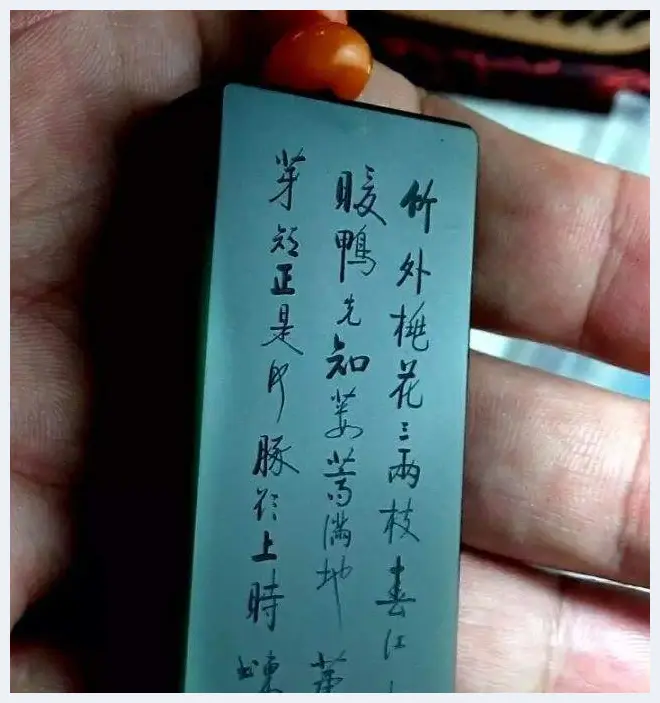 竹外桃花三兩枝春江
暖鴨先知蒌蒿滿地
芽短正是河豚欲上時